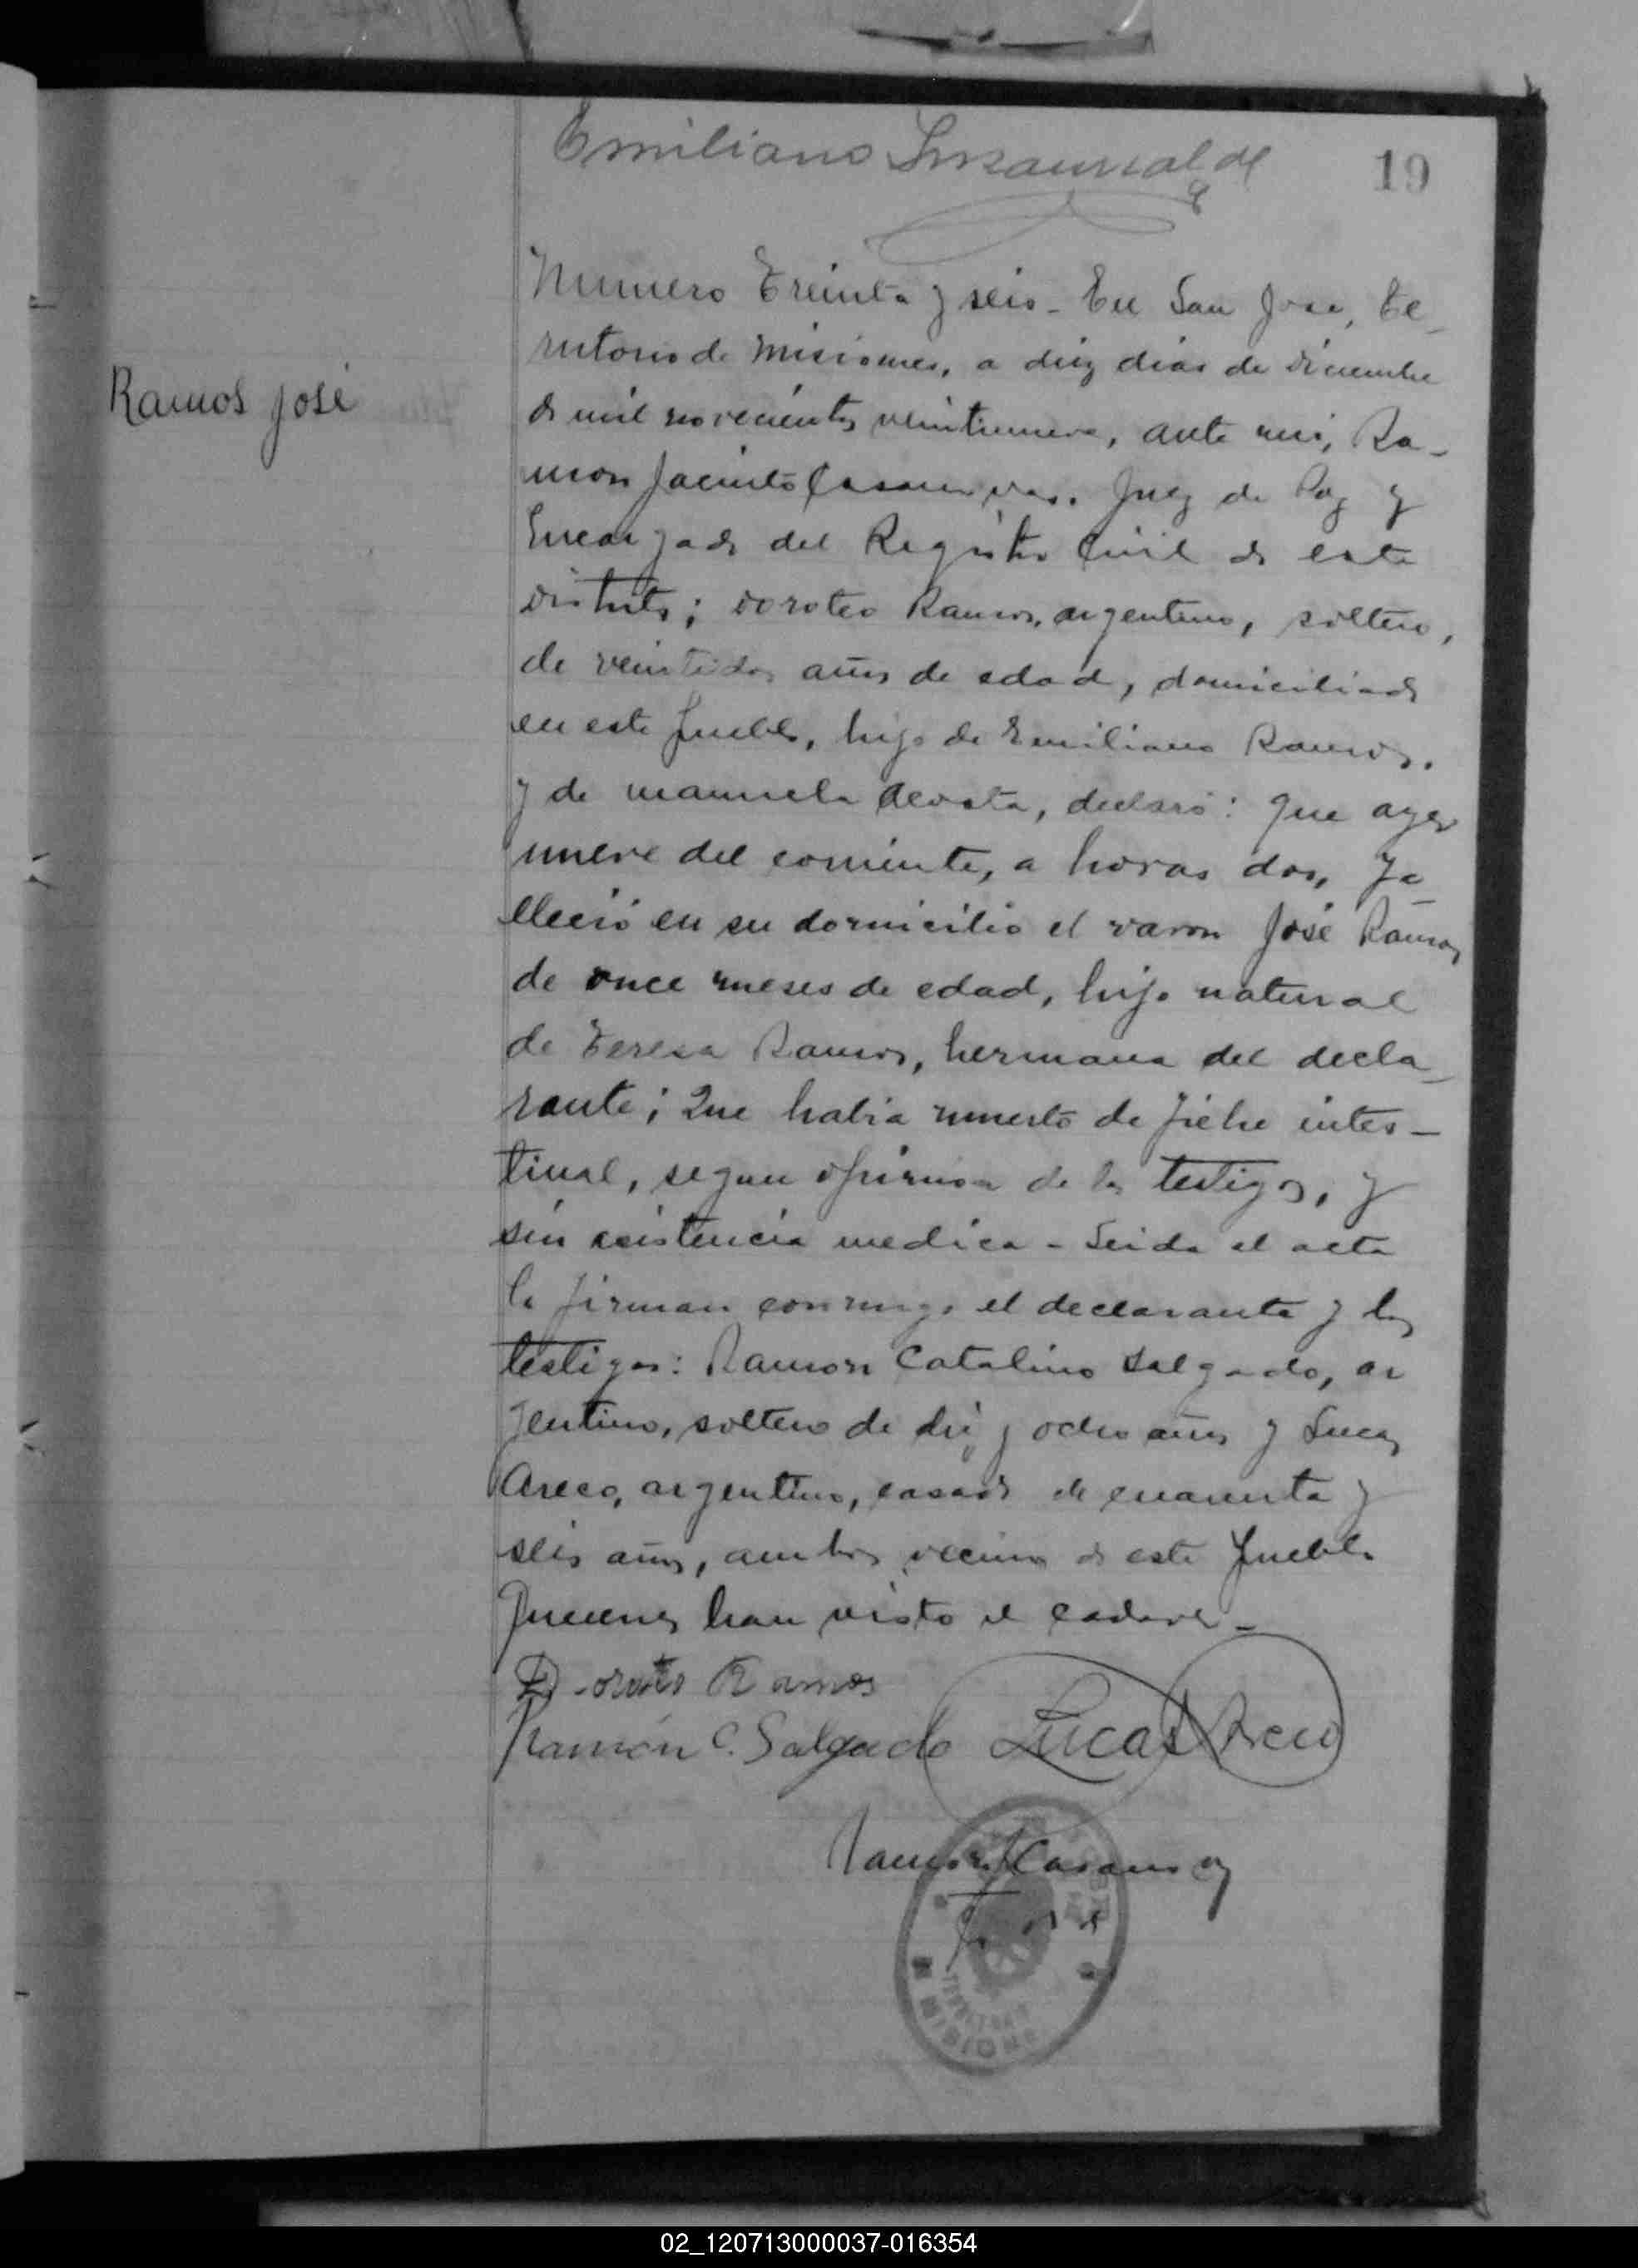 Emiliano Insaurralde
19
Ramos José
Numero Treinta y seis - En San Jose, Te-
rritorio de Misiones, a diez dias de diciembre
de mil novecientos veintinueve, ante mi, Ra-
mon Jacinto Casanovas. Juez de Paz y
Encargado del Registro Civil de este
distrito; doroteo Ramos, argentino, soltero,
de veintidos años de edad, domiciliado
en este pueblo, hijo de Emiliano Ramos,
y de manuela Acosta, declaró: que ayer
nueve del corriente, a horas dos, fa-
lleció en su domicilio el varon José Ramos
de once meses de edad, hijo natural
de Teresa Ramos, hermana del decla-
rante; Que habia muerto de fiebre intes-
tinal, segun opinion de los testigos, y
sin asistencia medica - Leida el acta
la firman conmigo el declarante y los
testigos: Ramon Catalino Salgado, ar
gentino, soltero de diez y ocho años y Lucas
Areco, argentino, casado de cuarenta y
seis años, ambos vecinos de este pueblo
Quienes han visto el cadaver -
Doroteo Ramos
Ramón C. Salgado Lucas Areco
Ramon J Casanovas
MISIONES
02_120713000037-016354